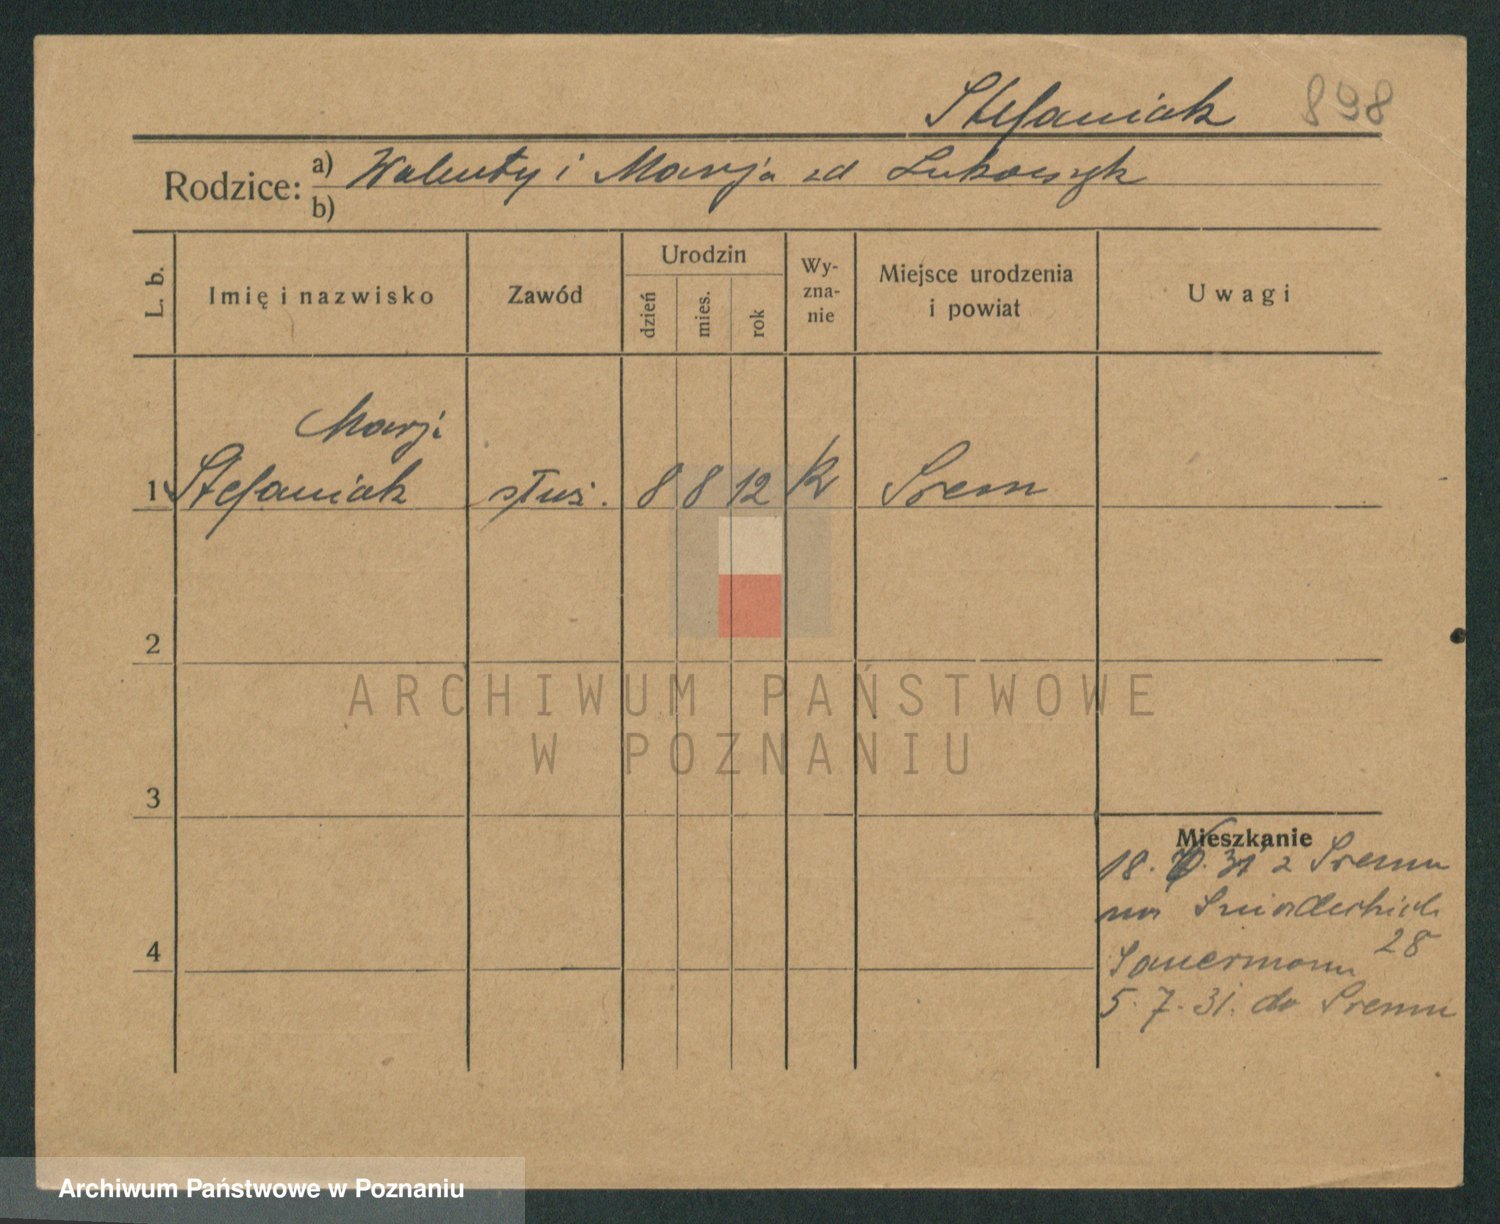 Stefaniak 898
Rodzice: a) Walenty i Marja zd Łukaszyk
b)
L. b. Imię i nazwisko Zawód Urodzin dzień mies. rok Wy-zna-nie Miejsce urodzenia i powiat Uwagi
Marja
1 Stefaniak służ. 8 8 12 k Śrem
2
ARCHIWUM PAŃSTWOWE
W POZNANIU
3
Mieszkanie
18. 31 z Śremu
na Śniadeckich
28
5. 7. 31. do Śremu
4
Archiwum Państwowe w Poznaniu